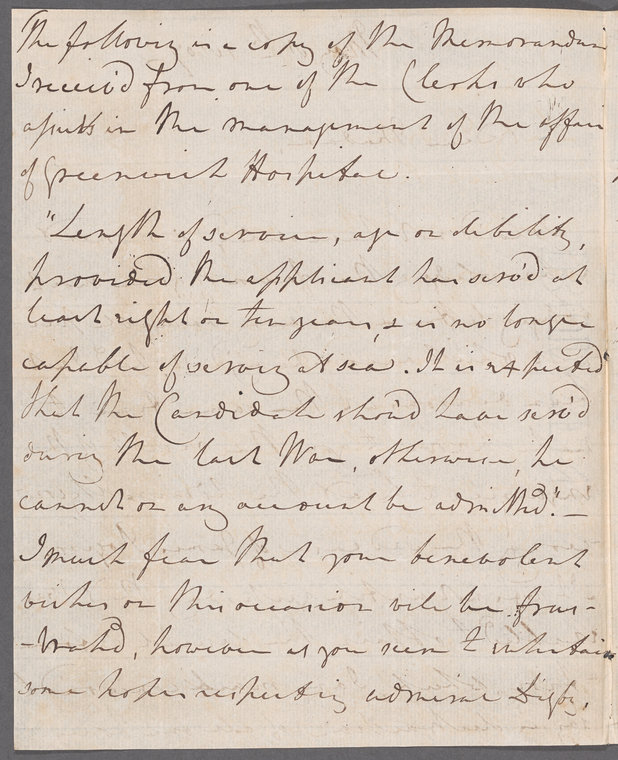 The following is a copy of the Memorandum
I receiv'd from one of the Clerks who
assists in the management of the affairs
of Greenwich Hospital.
"Length of service, age or debility,
provided the applicant has serv'd at
least eight or ten years, & is no longer
capable of serving at sea. It is expected
that the Candidate shou'd have serv'd
during the last War, otherwise, he
cannot on any account be admitted."—
I much fear that your benevolent
wishes on this occasion will be frus-
-trated, however as you seem to entertain
some hopes respecting admiral Digby,